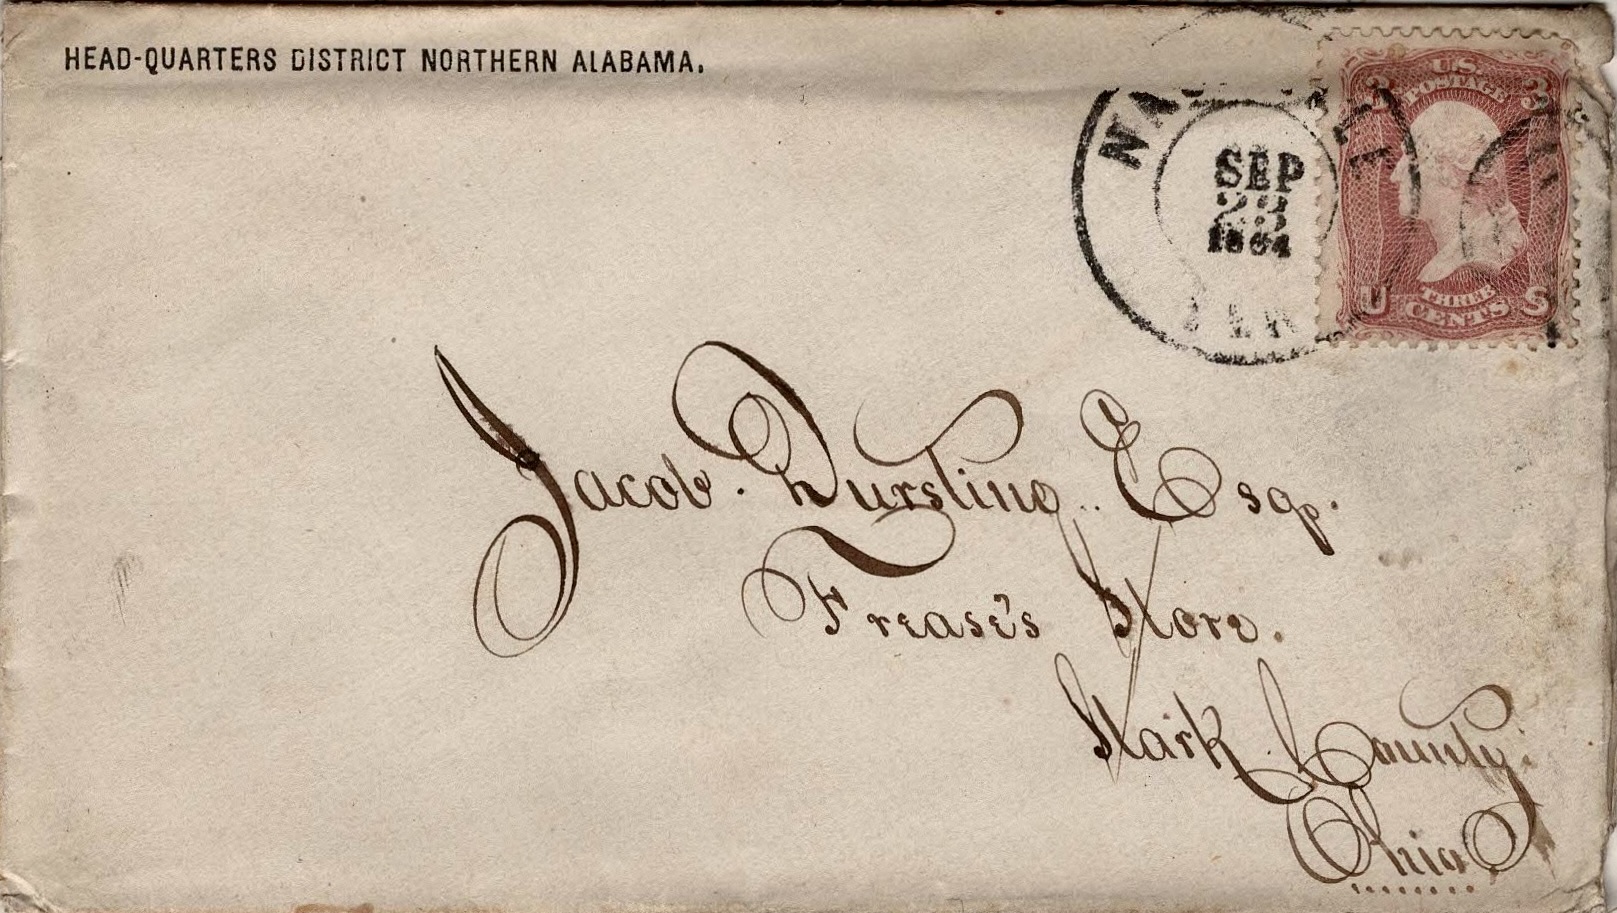 HEAD-QUARTERS DISTRICT NORTHERN ALABAMA.
SEP
23
1864
TEN
U.S.
POSTAGE
3 3
THREE
U CENTS S
Jacob. Dursling.. Esqr.
Frease's Store.
Stark County.
Ohio